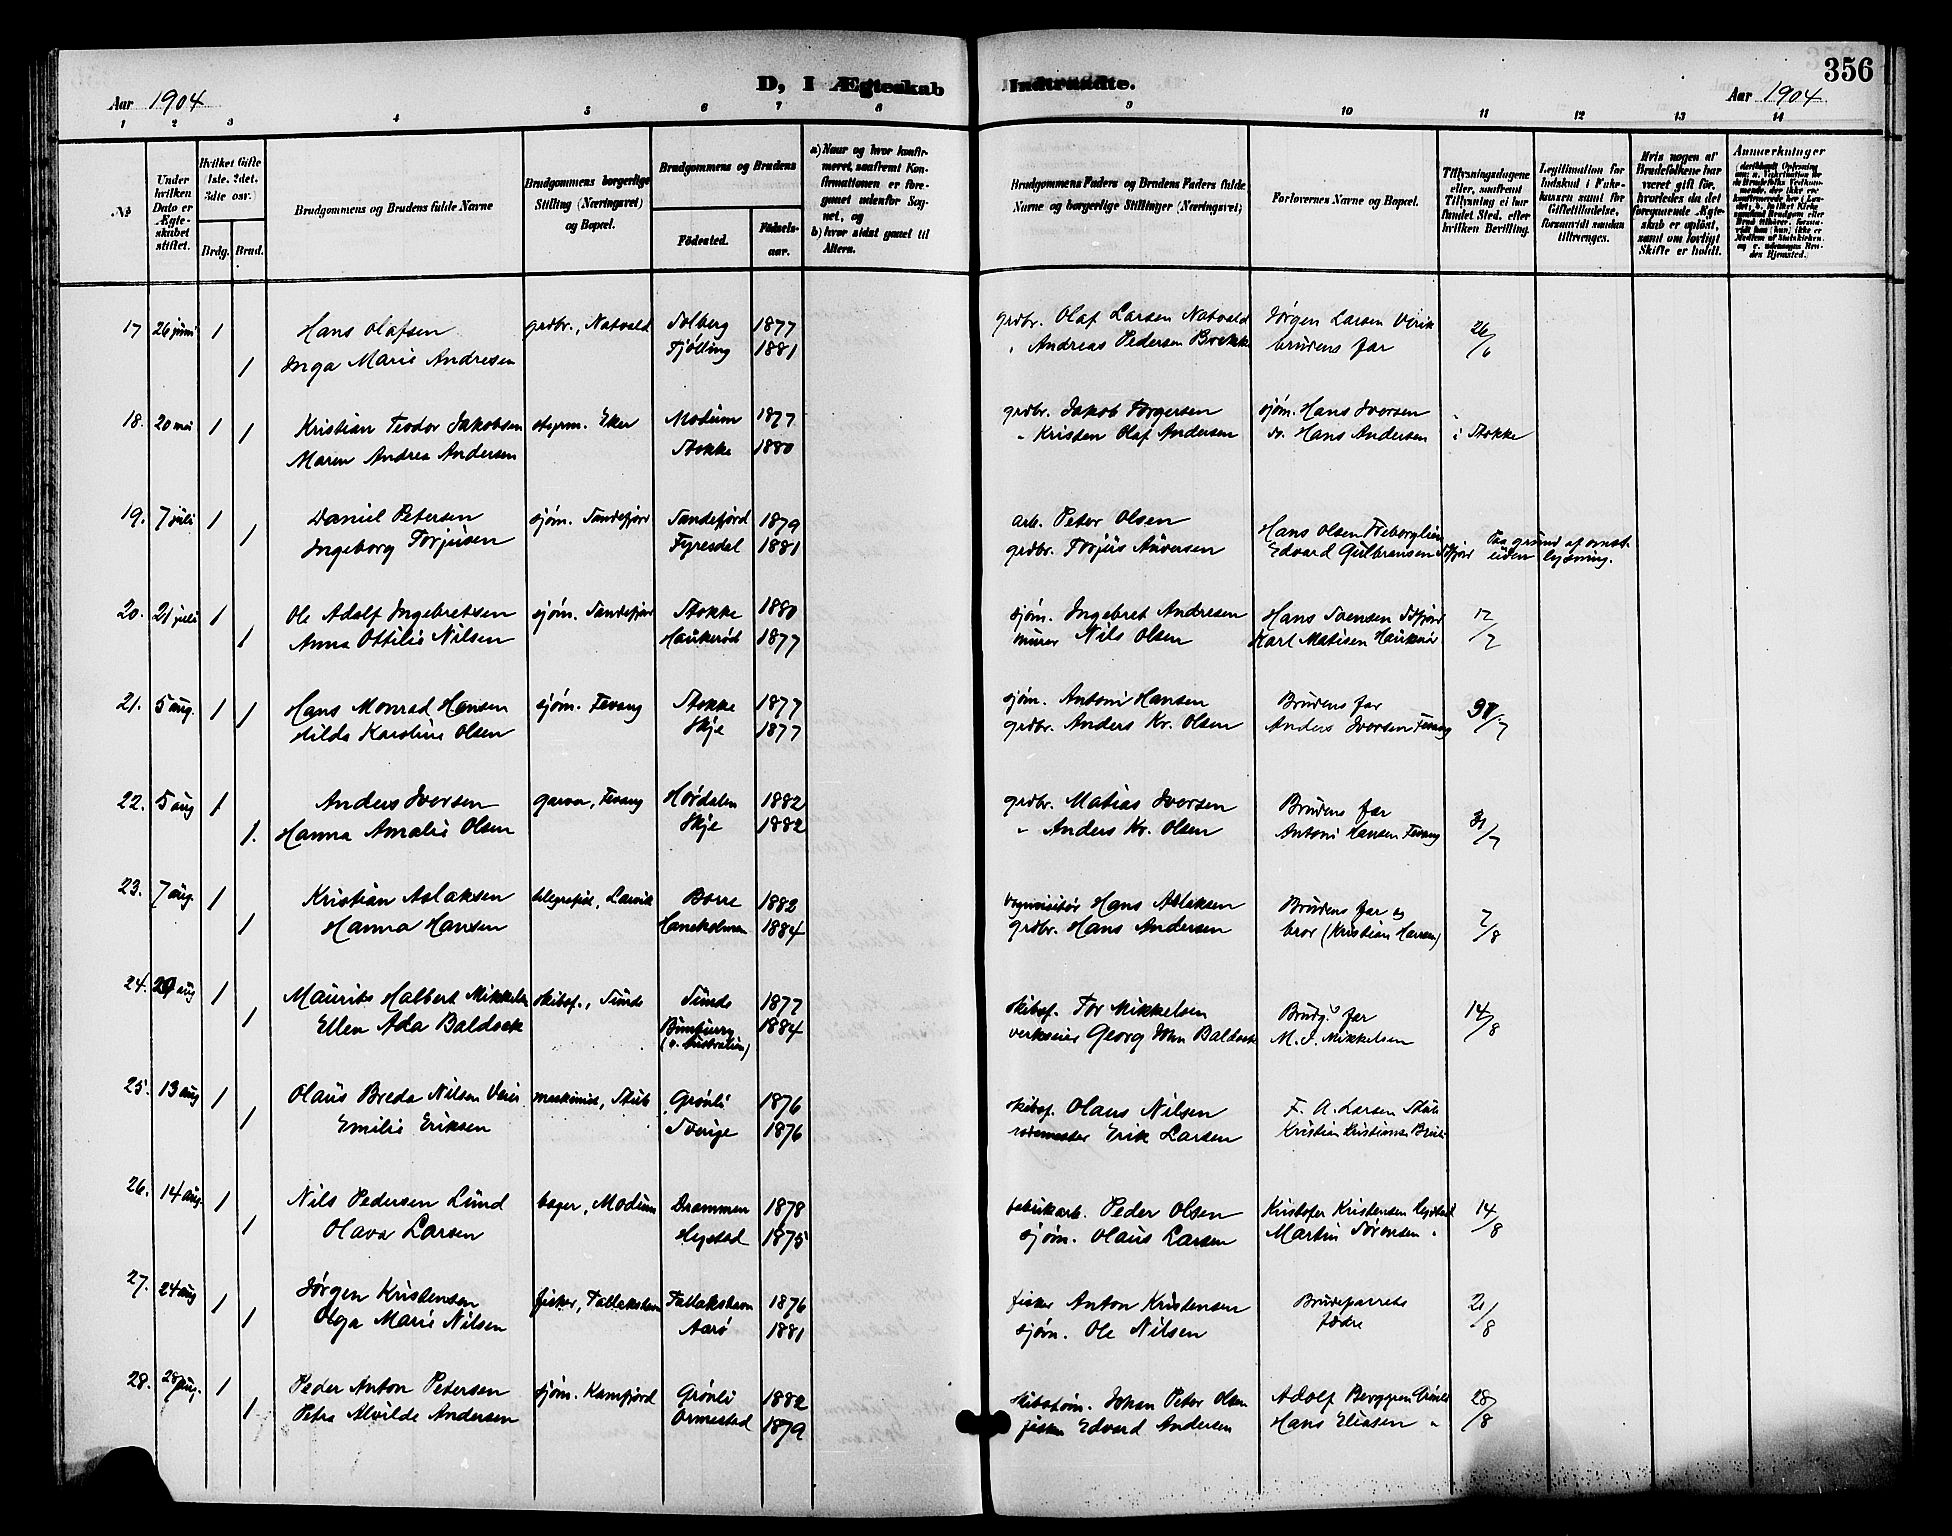 356
D, I Ægteskab Indtraadte.
Aar 1904
Aar 1904
1 2 3 4 5 6 7 8 9 10 11 12 13 14
No
Under hvilken Dato er Ægteskabet stiftet.
Hvilket Gifte (1ste, 2det, 3die osv.)
Brdg. Brud.
Brudgommens og Brudens fulde Navne
Brudgommens borgerlige Stilling (Næringsvei) og Bopæl.
Brudgommens og Brudens
Fødested.
Fødselsaar.
a) Naar og hvor konfirmeret, saafremt Konfirmationen er foregaaet udenfor Sognet, og
b) hvor sidst gaaet til Alters.
Brudgommens Faders og Brudens Faders fulde Navne og borgerlige Stillinger (Næringsvei)
Forlovernes Navne og Bopæl.
Tillysningsdagene eller, saafremt Tillysning ei har fundet Sted, efter hvilken Bevilling.
Legitimation for Indskud i Enkekassen samt for Giftetilladelse, forsaavidt saadan tiltrænges.
Hvis nogen af Brudefolkene har været gift før, hvorledes da det foregaaende Ægteskab er opløst, samt om lovligt Skifte er holdt.
Anmærkninger
17 26 juni 1 Hans Olafsen grdbr., Natvald Solberg 1877 grdbr. Olaf Larsen Natvald Jørgen Larsen Virik 26/6
1 Inga Marie Andresen Tjølling 1881 " Andreas Pedersen Brekke brudens far
18. 20 mai 1 Kristian Teodor Jakobsen styrm. Eker Modum 1877 grdbr. Jakob Torgersen sjøm. Hans Iversen
1 Maren Andrea Andersen Stokke 1880 " Kristen Olaf Andersen do. Hans Andersen i Stokke
19. 7 juli 1 Daniel Petersen sjøm. Sandefjord Sandefjord 1879 arb. Peter Olsen Hans Olsen
1 Ingeborg Torjusen Fyresdal 1881 grdbr. Torjus Edvard Gulbransen S.fjord Paa grund af uden lysning.
20. 21 juli 1 Ole Adolf Ingebretsen sjøm. Sandefjord Stokke 1880 sjøm. Ingebret Andresen Hans Svensen S.fjord 17/7
1 Anna Ottilie Nilsen Haukerød 1877 murer Nils Olsen Karl Matisen
21. 5 aug. 1 Hans Monrad Hansen sjøm. Fevang Stokke 1877 sjøm. Antoni Hansen Brudens far 31/7
1 Hilda Karoline Olsen Skje 1877 grdbr. Anders Kr. Olsen Anders Iversen Fevang
22. 5 aug 1 Anders Iversen garver, Fevang Hørdalen 1882 grdbr. Matias Iversen Brudens far 31/7
1. Hanna Amalie Olsen Skje 1882 " Anders Kr. Olsen Antoni Hansen Fevang
23. 7 aug. 1 Kristian Aslaksen telegrafist, Larvik Borre 1882 Hans Aslaksen Brudens far og 7/8
1 Hanna Hansen Haneholmen 1884 grdbr. Hans Andersen bror (Kristian Hansen)
24. aug 1 Maurits Halbert Mikkelsen skibsf., Sunde Sunde 1877 skibsf. Tor Mikkelsen Brudg.s far 14/8
1 Ellen Ada Baldock 1884 verkseier Georg Baldock M. J. Mikkelsen
(v. Australien)
25. 13 aug 1 Olaus Breda Nilsen Veier maskinist, Stub Grønli 1876 skibsf. Olaus Nilsen F. A. Larsen Stub
1 Emilie Eriksen Sverige 1876 Erik Larsen Kristian Kristiansen
26. 14 aug. 1 Nils Pedersen Lund bager, Modum Drammen 1878 fabrikarb. Peder Olsen Kristofer Kristensen Hystad 14/8
1 Olava Larsen Hystad 1875 sjøm. Olaus Larsen Martin Sørensen "
27. 24 aug 1 Jørgen Kristensen fisker, Tallakshavn Tallakshavn 1876 fisker Anton Kristensen Brudeparrets 21/8
1 Olga Marie Nilsen Aarø 1881 sjøm. Ole Nilsen fædre
28. 28 aug. 1 Peder Anton Petersen sjøm. Kamfjord Grønli 1882 skibstøm. Johan Peter Olsen Adolf Berggren Grønli 28/8
1 Petra Alvilde Andersen Ormestad 1879 fisker Edvard Andersen Hans Eliasen "